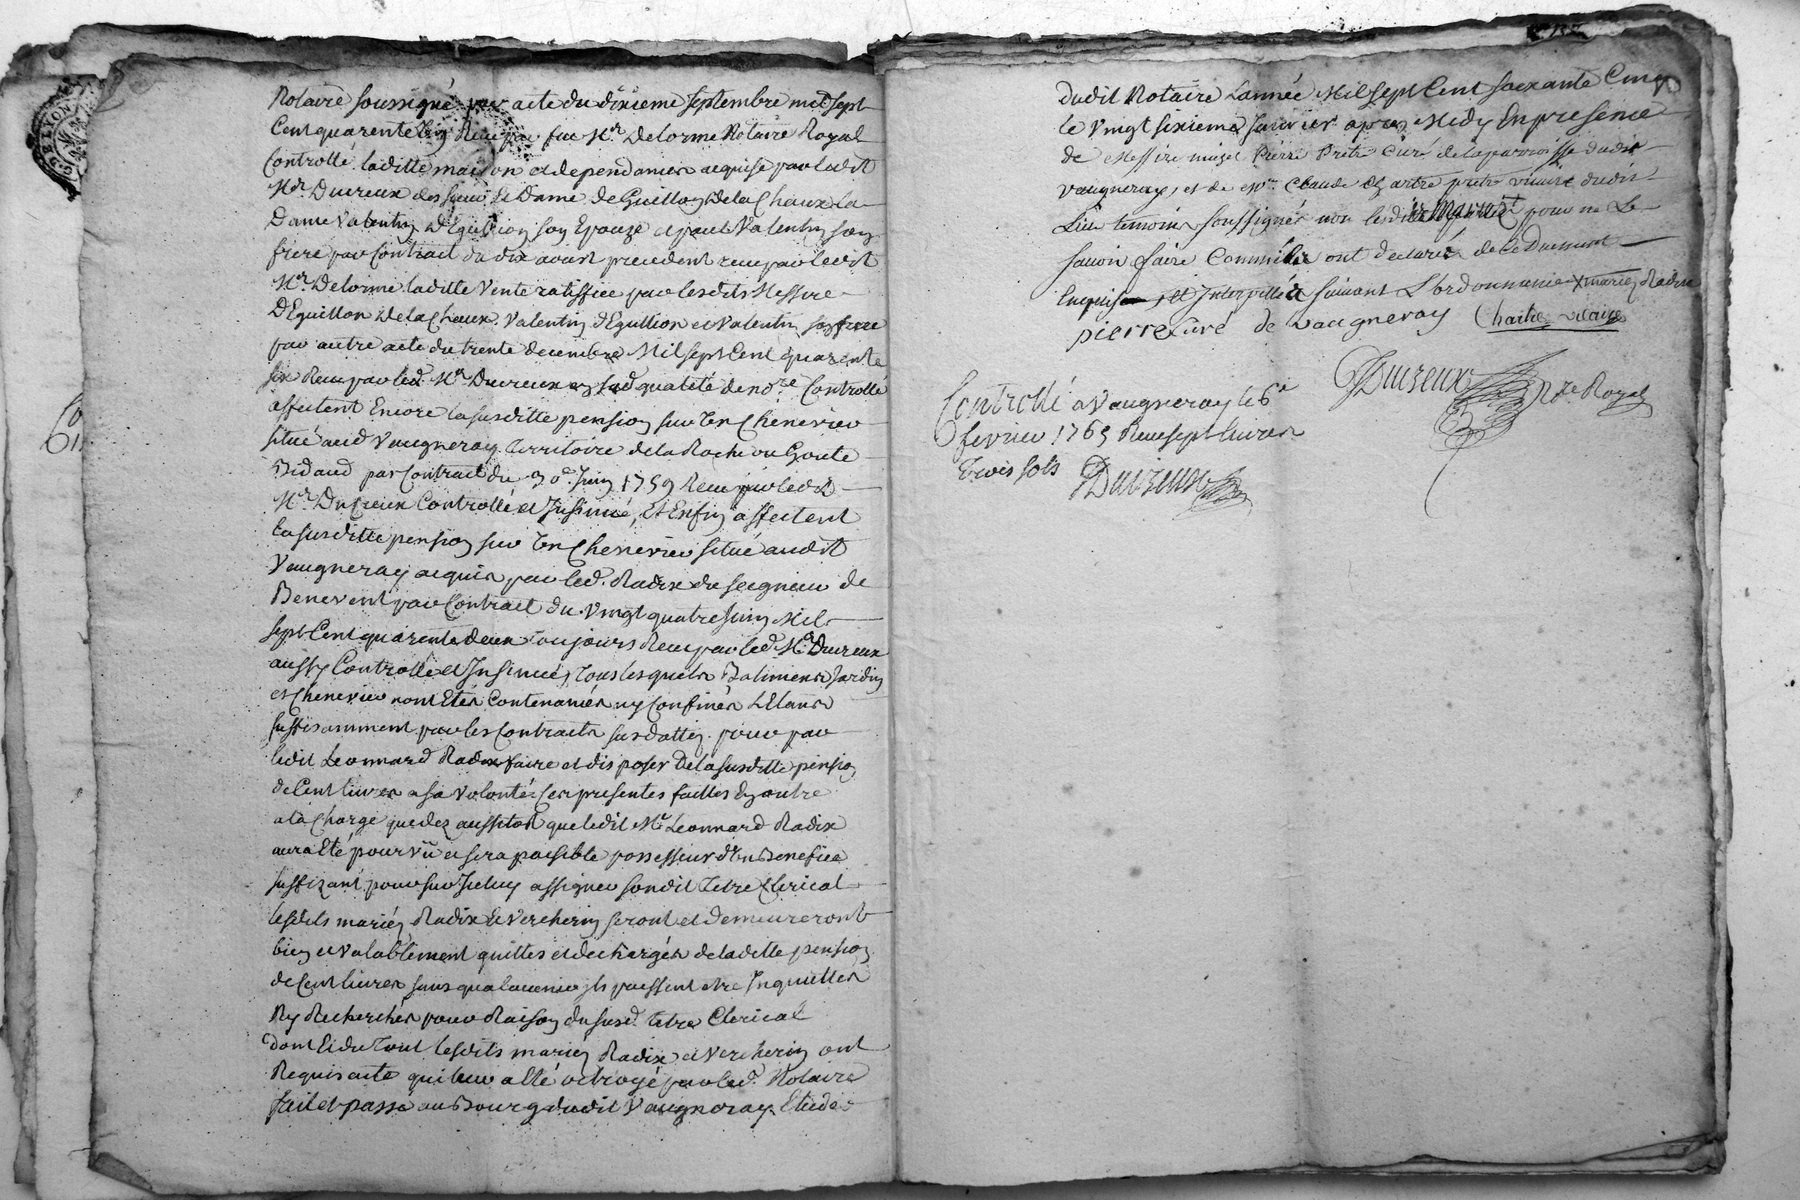 Notaire soussigné par acte du dixieme septembre mil sept
Cent quarente Reçu par feu Mr. Delorme Notaire Royal
Controllé laditte maison et dependances acquise par ledit
Mr. Ducreux des sieur Et Dame de Guillon Dela Chaux La
Dame Valentin D'Eguillion son Epouze et paul Valentin son
frere par Contract du dix aoust precedent reçu par ledit
Mr. Delorme laditte Vente ratiffiée par lesdits Messire
D'Eguillon De la Chaux. Valentin d'Eguillion et Valentin son frere
par autre acte du trente decembre Mil sept Cent quarente
six Reçu par led. Mr. Ducreux en lad. qualité de nore. Controllé
affectent Encore la susditte pension sur Un Chenevier
situé aud Vaugneray Territoire de la Roche ou Goute
Bidaud par Contract du 30e. Juin 1759 Reçu par ledit
Mr. DuCreux Controllé et Insinué, Et Enfin affectent
la susditte pension sur Un Chenevier situé audit
Vaugneray acquis par led. Radix du seigneur de
Benevent par Contract du Vingt quatre Juin Mil
sept Cent quarente deux Toujours Reçu par led Mr. Ducreux
aussy Controllé et Insinué, Tous lesquels Batimens Jardin
et Chenevier nont Etés Contenanciés ny Confinés L'Etans
suffisamment par les Contracts susdattés. pour par
ledit Leonnard Radix faire et disposer De la susditte pension
de Cent livres a sa Volonté. Ces presentes faittes En outre
a la Charge que dez aussitot que ledit Mr. Leonnard Radix
aura Eté pourvû et sera paisible possesseur d'Un Benefice
suffizant pour sur Iceluy assigner sondit Titre Clerical
lesdits mariés Radix Et Vercherin seront et demeureront
bien et Valablement quittes et dechargés de laditte pension
de Cent livres sans qua lavenir ils puissent etre Inquiettés
Ny Recherchés pour Raison du susd. titre Clerical
Dont Et du Tout lesdits mariés Radix et Vercherin ont
Requis acte qui leur a Eté octroyé par led. Notaire
fait et passé au Bourg dudit Vaugneray. Etude
dudit Notaire L'année Mil sept Cent soixante Cinq
le Vingt sixieme Janvier apres Midy En presence
de Messire Pierre Pretre Curé de la parroisse dudit
Vaugneray, et de Mre. Claude Chartre pretre vicaire dudit
Lieu temoins soussignés non lesdits mariés pour ne Le
savoir faire Comme ils ont declarés de Ce Duement
Enquis et Interpellés suivant L'ordonnance x mariés Radix
pierre Curé de Vaugneray Chartre vicaire
Ducreux Nre Royal
Controllé a Vaugneray le 6e
fevrier 1765 Reçu sept livres
trois sols Ducreux